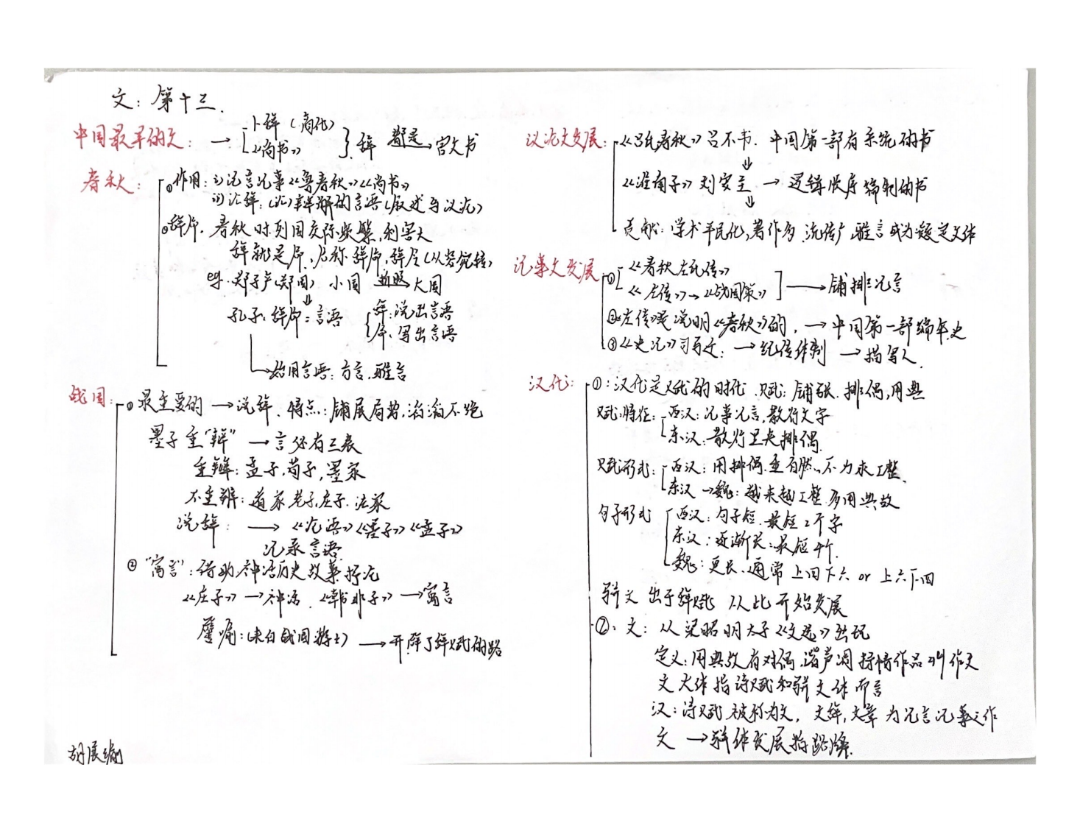 文：第十三.
中国最早的文： → 卜辞（商代）
《尚书》 } 辞 都是 官文书
春秋：
①作用：1)记言记事《鲁春秋》《尚书》
2)论辞，(论)辩解的言语(叙述与议论)
②辞命. 春秋时列国交际频繁，利害大
辞就是命，后称辞命，辞令(以婉转)
郑子产(郑国) 小国 大国
孔子：辞命：言语 { 辞：说出言语
命：写出言语
始用言语：方言，雅言
战国：
①最重要的→说辞. 特点：铺展局势，滔滔不绝
墨子重"辩" → 言必有三表
重辩：孟子，荀子，墨家
不重辩：道家老子，庄子. 法家
说辞： → 《论语》《墨子》《孟子》
记录言语
②"寓言"：借助神话历史故事抒论
《庄子》→神话. 《韩非子》→寓言
(来自战国游士) → 开辟了辞赋的路
胡展编
议论文发展：《吕氏春秋》吕不韦. 中国第一部有系统的书
《淮南子》刘安主 → 逻辑顺序编制的书
贡献：学术平民化，著作为 流传广 雅言成为
记事文发展
①《春秋左氏传》
《左传》→《战国策》 → 铺排记言
②左传 说明《春秋》的, → 中国第一部编年史
③《史记》司马迁： → 纪传体制 → 描写人
汉代：①：汉代是赋的时代. 赋：铺张. 排偶，用典
赋：特征：西汉：记事记言，散行文字
东汉：散行里夹排偶
赋形式：西汉：用排偶，重自然，不力求工整.
东汉→魏：越来越工整 多用典故
句子形式 西汉：句子短. 最短2个字
东汉：逐渐长：最短4个.
魏：更长. 通常上四下六 or 上六下四
骈文 出于辞赋 从此开始发展
②. 文：从梁昭明太子《文选》出现
定义：用典故有对偶，谐声调 抒情作品叫作文
文大体指诗赋和骈文体而言
汉：诗赋被称为文. 文辞，文章 为记言记事之作
文 → 骈体发展指路牌